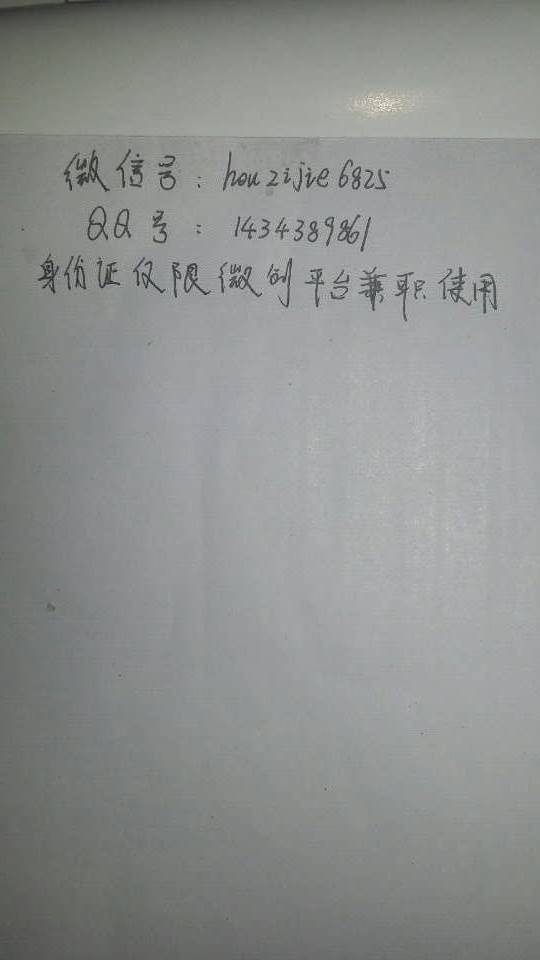 微信号：houzijie6825
QQ号：1434389861
身份证仅限微创平台兼职使用